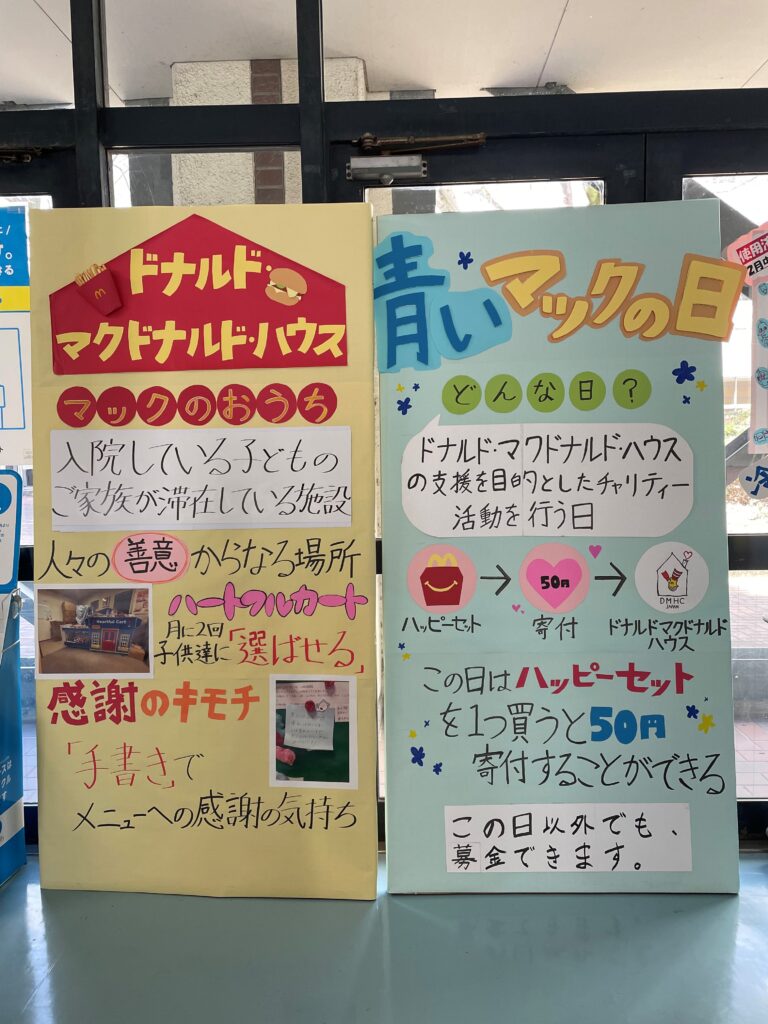 ドナルド・
マクドナルド・ハウス
マックのおうち
入院している子どもの
ご家族が滞在している施設
人々の善意からなる場所
Heartful Cart
ハートフルカート
月に2回
子供達に「選ばせる」
感謝のキモチ
「手書き」で
メニューへの感謝の気持ち
青いマックの日
どんな日？
ドナルド・マクドナルド・ハウス
の支援を目的としたチャリティー
活動を行う日
50円
DMHC
JAPAN
ハッピーセット
寄付
ドナルドマクドナルド
ハウス
この日はハッピーセット
を1つ買うと50円
寄付することができる
この日以外でも、
募金できます。